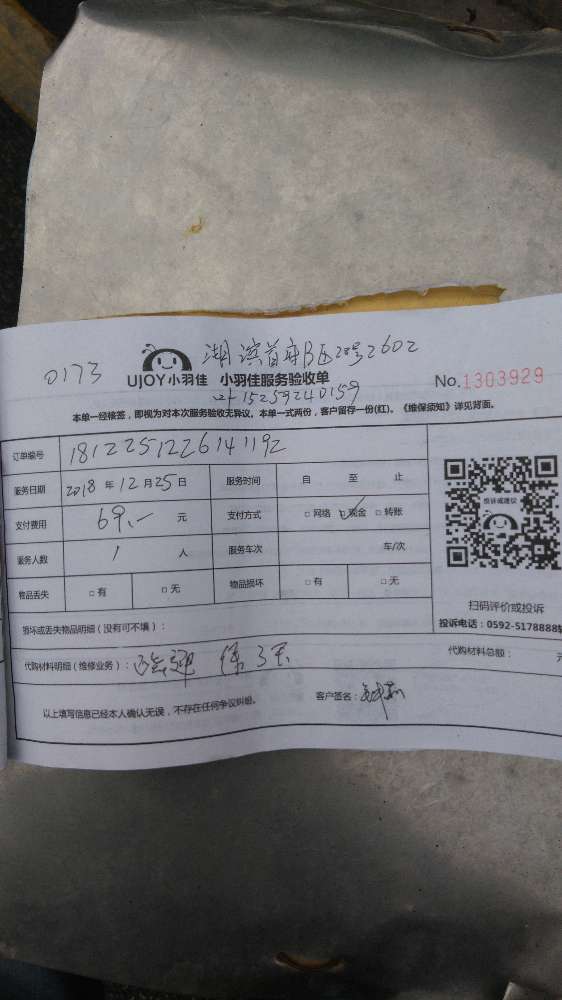 0173
湖滨首府B区28号2602
UJOY小羽佳 小羽佳服务验收单
No.1303929
叶15259240159
本单一经接签，即视为对本次服务验收无异议。本单一式两份，客户留存一份(红)。《维保须知》详见背面。
订单编号 1812251226141192
服务日期 2018 年 12 月 25 日 服务时间 自 至 止
支付费用 69.- 元 支付方式 □ 网络 ☑ 现金 □ 转账
服务人数 1 人 服务车次 车/次
物品丢失 □ 有 □ 无 物品损坏 □ 有 □ 无
投诉或建议
扫码评价或投诉
投诉电话：0592-5178888转
损坏或丢失物品明细（没有可不填）：
代购材料明细（维修业务）：
代购材料总额： 元
以上填写信息已经本人确认无误，不存在任何争议纠纷。 客户签名：